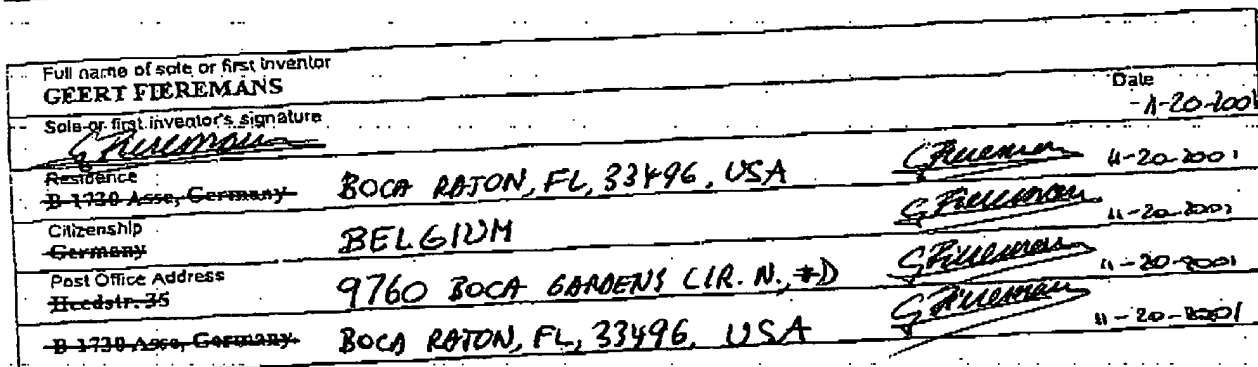 Full name of sole or first inventor
GEERT FIEREMANS
Sole or first inventor's signature Date
G Fieremans 11-20-2001
Residence
B-1730 Asse, Germany BOCA RATON, FL, 33496, USA G Fieremans 11-20-2001
Citizenship
Germany BELGIUM G Fieremans 11-20-2001
Post Office Address
Heedstr. 35 9760 BOCA GARDENS CIR. N., #D G Fieremans 11-20-2001
B-1730 Asse, Germany BOCA RATON, FL, 33496, USA G Fieremans 11-20-2001